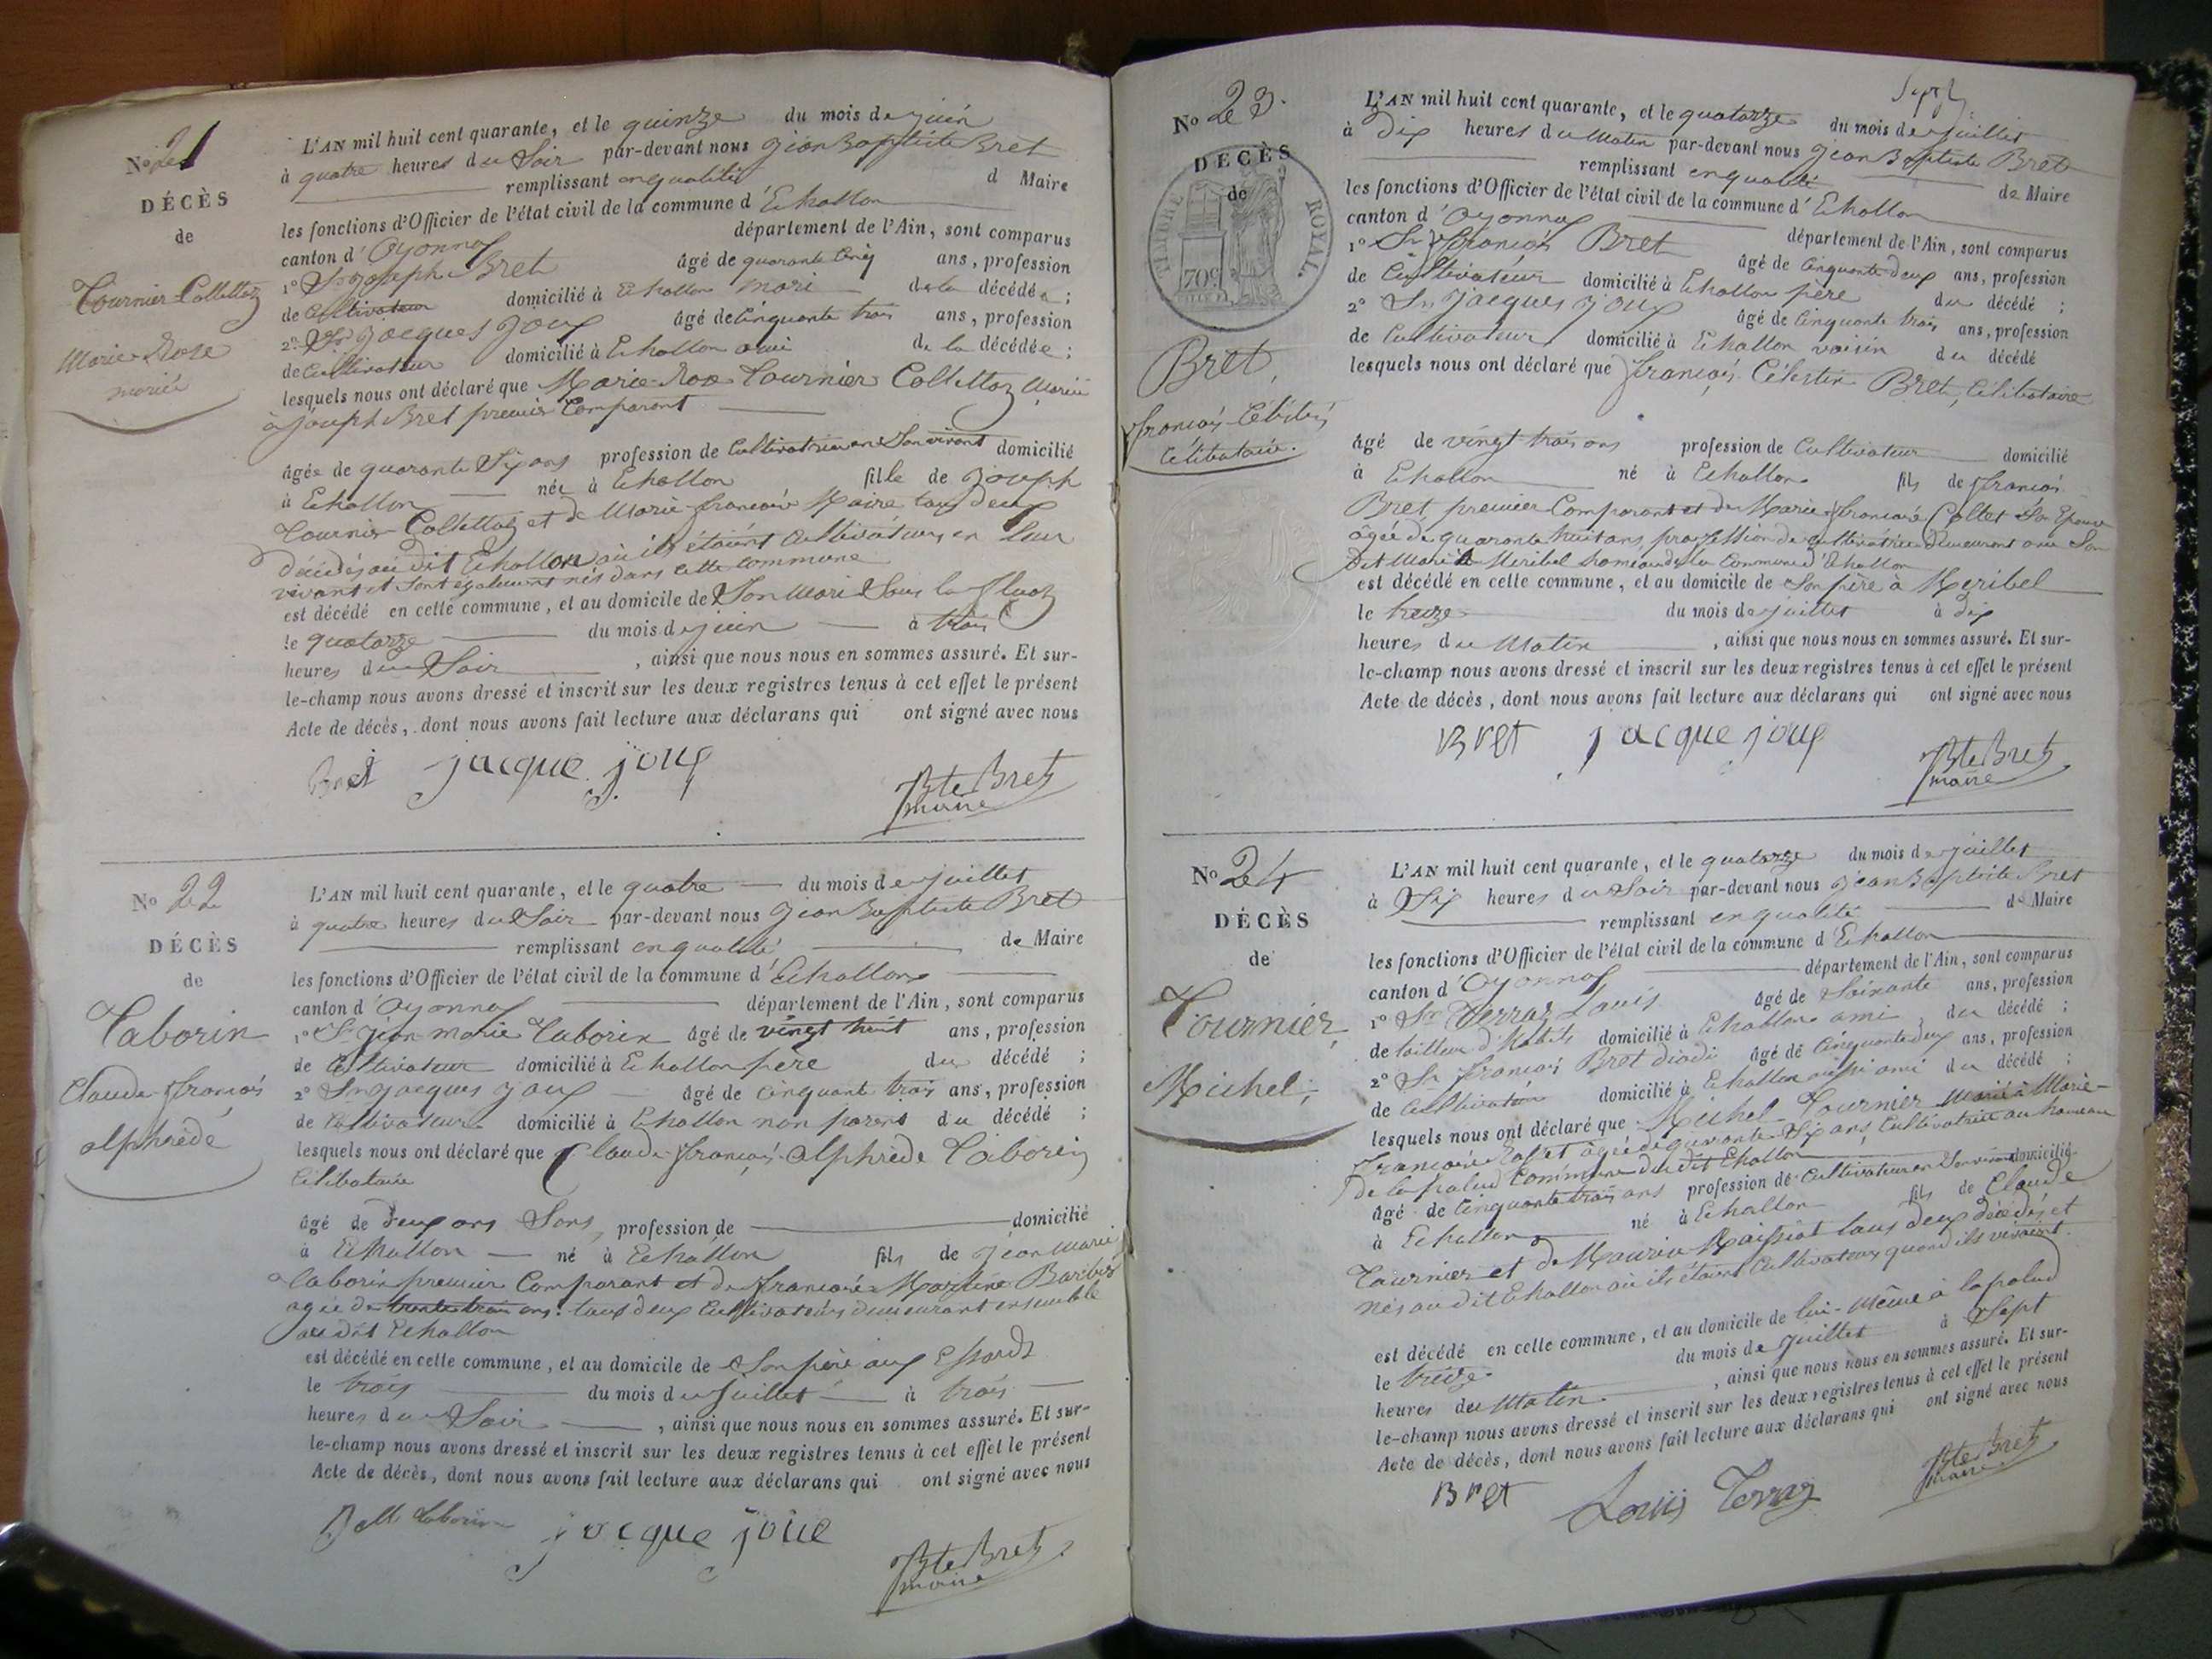 No 21
DÉCÈS
de
Tournier-Collettaz
Marie-Rose
mariée
L'AN mil huit cent quarante, et le quinze du mois de juin
à quatre heures du Soir par-devant nous Jean Baptiste Bret
remplissant en qualité d Maire
les fonctions d'Officier de l'état civil de la commune d'Echallon
canton d'Oyonnax département de l'Ain, sont comparus
1o Sr Joseph Bret âgé de quarante cinq ans, profession
de Cultivateur domicilié à Echallon mari de la décédée ;
2o Sr Jacques Joux âgé de Cinquante trois ans, profession
de Cultivateur domicilié à Echallon ami de la décédée ;
lesquels nous ont déclaré que Marie-Rose Tournier Collettaz Mariée
à Joseph Bret premier Comparant
âgée de quarante Six ans profession de Cultivatrice en Son vivant domicilié
à Echallon née à Echallon fille de Joseph
Tournier-Collettaz et de Marie-françoise Maire tous deux
décédés au dit Echallon où ils étaient Cultivateurs en leur
vivant et Sont également nés dans cette commune
est décédé en cette commune, et au domicile de Son Mari Sous la
le quatorze du mois de juin à trois
heures du Soir, ainsi que nous nous en sommes assuré. Et sur-
le-champ nous avons dressé et inscrit sur les deux registres tenus à cet effet le présent
Acte de décès, dont nous avons fait lecture aux déclarans qui ont signé avec nous
Bret jacque joux
Bte Bret
maire
No 22
DÉCÈS
de
Taborin
Claude françois
alphrede
L'AN mil huit cent quarante, et le quatre du mois de juillet
à quatre heures du Soir par-devant nous Jean Baptiste Bret
remplissant en qualité de Maire
les fonctions d'Officier de l'état civil de la commune d'Echallon
canton d'Oyonnax département de l'Ain, sont comparus
1o Sr Jean Marie Taborin âgé de vingt huit ans, profession
de Cultivateur domicilié à Echallon père du décédé ;
2o Sr Jacques Joux âgé de cinquante trois ans, profession
de Cultivateur domicilié à Echallon non parent du décédé ;
lesquels nous ont déclaré que Claude-françois-alphrede Taborin
Célibataire
âgé de deux ans Sans profession de domicilié
à Echallon né à Echallon fils de Jean Marie
Taborin premier Comparant et de françoise Marline Barbet
agée de trente trois ans. tous deux Cultivateurs demeurant ensemble
au dit Echallon
est décédé en cette commune, et au domicile de Son père aux Essards
le trois du mois de Juillet à trois
heures du Soir, ainsi que nous nous en sommes assuré. Et sur-
le-champ nous avons dressé et inscrit sur les deux registres tenus à cet effet le présent
Acte de décès, dont nous avons fait lecture aux déclarans qui ont signé avec nous
Taborin jacque joue
Bte Bret
maire
No 23.
DÉCÈS
de
TIMBRE ROYAL.
70c
Bret,
françois-Célestin
Célibataire.
L'AN mil huit cent quarante, et le quatorze du mois de juillet
à dix heures du Matin par-devant nous Jean Baptiste Bret
remplissant en qualité de Maire
les fonctions d'Officier de l'état civil de la commune d'Echallon
canton d'Oyonnax département de l'Ain, sont comparus
1o Sr françois Bret âgé de Cinquante deux ans, profession
de Cultivateur domicilié à Echallon père du décédé ;
2o Sr Jacques Joux âgé de Cinquante trois ans, profession
de Cultivateur domicilié à Echallon voisin du décédé
lesquels nous ont déclaré que françois Célestin Bret, Célibataire
âgé de vingt-trois ans profession de Cultivateur domicilié
à Echallon né à Echallon fils de françois
Bret premier Comparant et de Marie françoise Collet Son Epouse
âgée de quarante huit ans, profession de cultivatrice demeurant avec Son
Dit Mari à Meribel hameau de la Commune d'Echallon
est décédé en cette commune, et au domicile de Son père à Meribel
le treize du mois de juillet à dix
heures du Matin, ainsi que nous nous en sommes assuré. Et sur-
le-champ nous avons dressé et inscrit sur les deux registres tenus à cet effet le présent
Acte de décès, dont nous avons fait lecture aux déclarans qui ont signé avec nous
Bret jacque joux
Bte Bret
maire
No 24
DÉCÈS
de
Tournier
Michel,
L'AN mil huit cent quarante, et le quatorze du mois de juillet
à Six heures du Soir par-devant nous Jean Baptiste Bret
remplissant en qualité de Maire
les fonctions d'Officier de l'état civil de la commune d'Echallon
canton d'Oyonnax département de l'Ain, sont comparus
1o Sr Terraz Louis âgé de Soixante ans, profession
de tailleur d'Habits domicilié à Echallon ami du décédé ;
2o Sr françois Bret âgé de Cinquante deux ans, profession
de Cultivateur domicilié à Echallon aussi ami du décédé ;
lesquels nous ont déclaré que Michel Tournier Marié à Marie-
françoise agée de quarante Six ans, Cultivatrice au hameau
de la palud Commune du dit Echallon
âgé de Cinquante trois ans profession de Cultivateur en Son vivant domicilié
à Echallon né à Echallon fils de Claude
Tournier et de Maissiat tous deux décédés et
nés au dit Echallon où ils étaient Cultivateurs quand ils vivaient
est décédé en cette commune, et au domicile de lui-Même à la palud
le treize du mois de juillet à Sept
heures du Matin, ainsi que nous nous en sommes assuré. Et sur-
le-champ nous avons dressé et inscrit sur les deux registres tenus à cet effet le présent
Acte de décès, dont nous avons fait lecture aux déclarans qui ont signé avec nous
Bret Louis Terraz
Bte Bret
maire